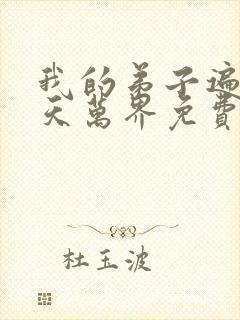 我的弟子遍
天萬界免費
杜玉波